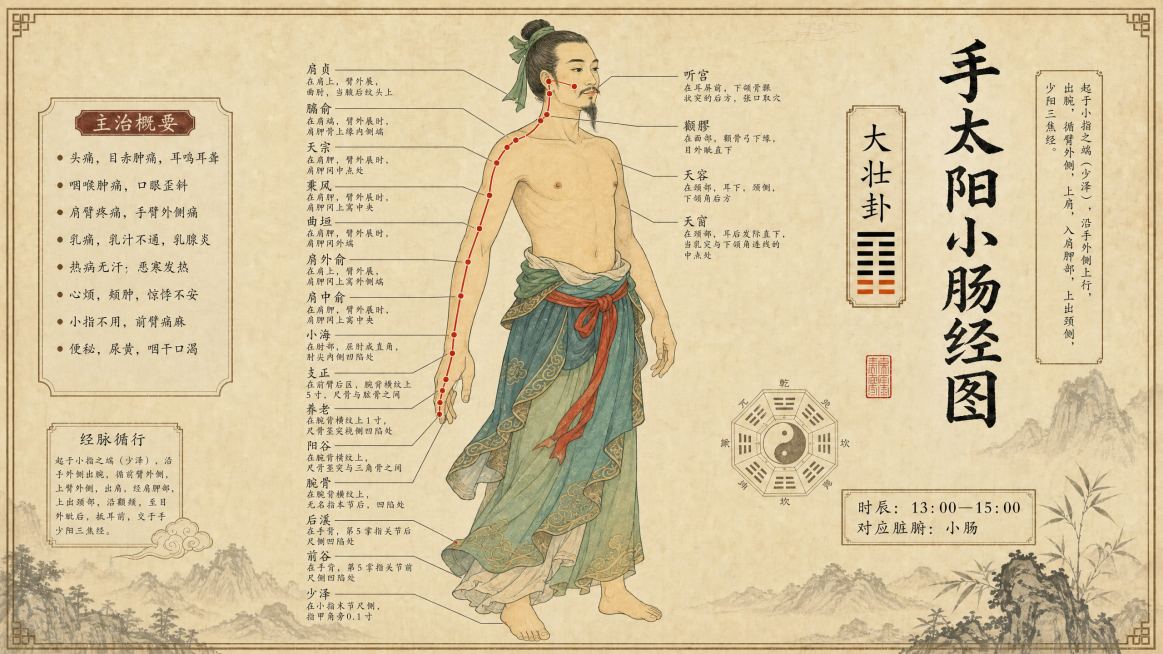 手太阳小肠经图
起于小指之端（少泽），沿手外侧上行，
出腕，循臂外侧，上肩，入肩胛部，上出颈侧，
少阳三焦经。
大壮卦
主治概要
头痛，目赤肿痛，耳鸣耳聋
咽喉肿痛，口眼歪斜
肩臂疼痛，手臂外侧痛
乳痛，乳汁不通，乳腺炎
热病无汗；恶寒发热
心烦，颊肿，惊悸不安
小指不用，前臂痛麻
便秘，尿黄，咽干口渴
经脉循行
起于小指之端（少泽），沿
手外侧出腕，循前臂外侧，
上臂外侧，出肩，经肩胛部，
上出颈部，沿颧颊，至目
外眦后，抵耳前，交于手
少阳三焦经。
肩贞
在肩上，臂外展，
曲肘，当腋后纹头上
臑俞
在肩端，臂外展时，
肩胛骨上缘内侧端
天宗
在肩胛，臂外展时，
肩胛冈中点处
秉风
在肩胛，臂外展时，
肩胛冈上窝中央
曲垣
在肩胛，臂外展时，
肩胛冈外端
肩外俞
在肩上，臂外展，
肩胛冈上窝外侧端
肩中俞
在肩胛，臂外展时，
肩胛冈上窝中央
小海
在肘部，屈肘成直角，
肘尖内侧凹陷处
支正
在前臂后区，腕背横纹上
5寸，尺骨与肱骨之间
养老
在腕背横纹上1寸，
尺骨茎突桡侧凹陷处
阳谷
在腕背横纹上，
尺骨茎突与三角骨之间
腕骨
在腕背横纹上，
无名指本节后，凹陷处
后溪
在手背，第5掌指关节后
尺侧凹陷处
前谷
在手背，第5掌指关节前
尺侧凹陷处
少泽
在小指末节尺侧，
指甲角旁0.1寸
听宫
在耳屏前，下颌骨髁
状突的后方，张口取穴
颧髎
在面部，颧骨弓下缘，
目外眦直下
天容
在颈部，耳下，颈侧，
下颌角后方
天窗
在颈部，耳后发际直下，
当乳突与下颌角连线的
中点处
乾
坎
坎
时辰：13:00—15:00
对应脏腑：小肠